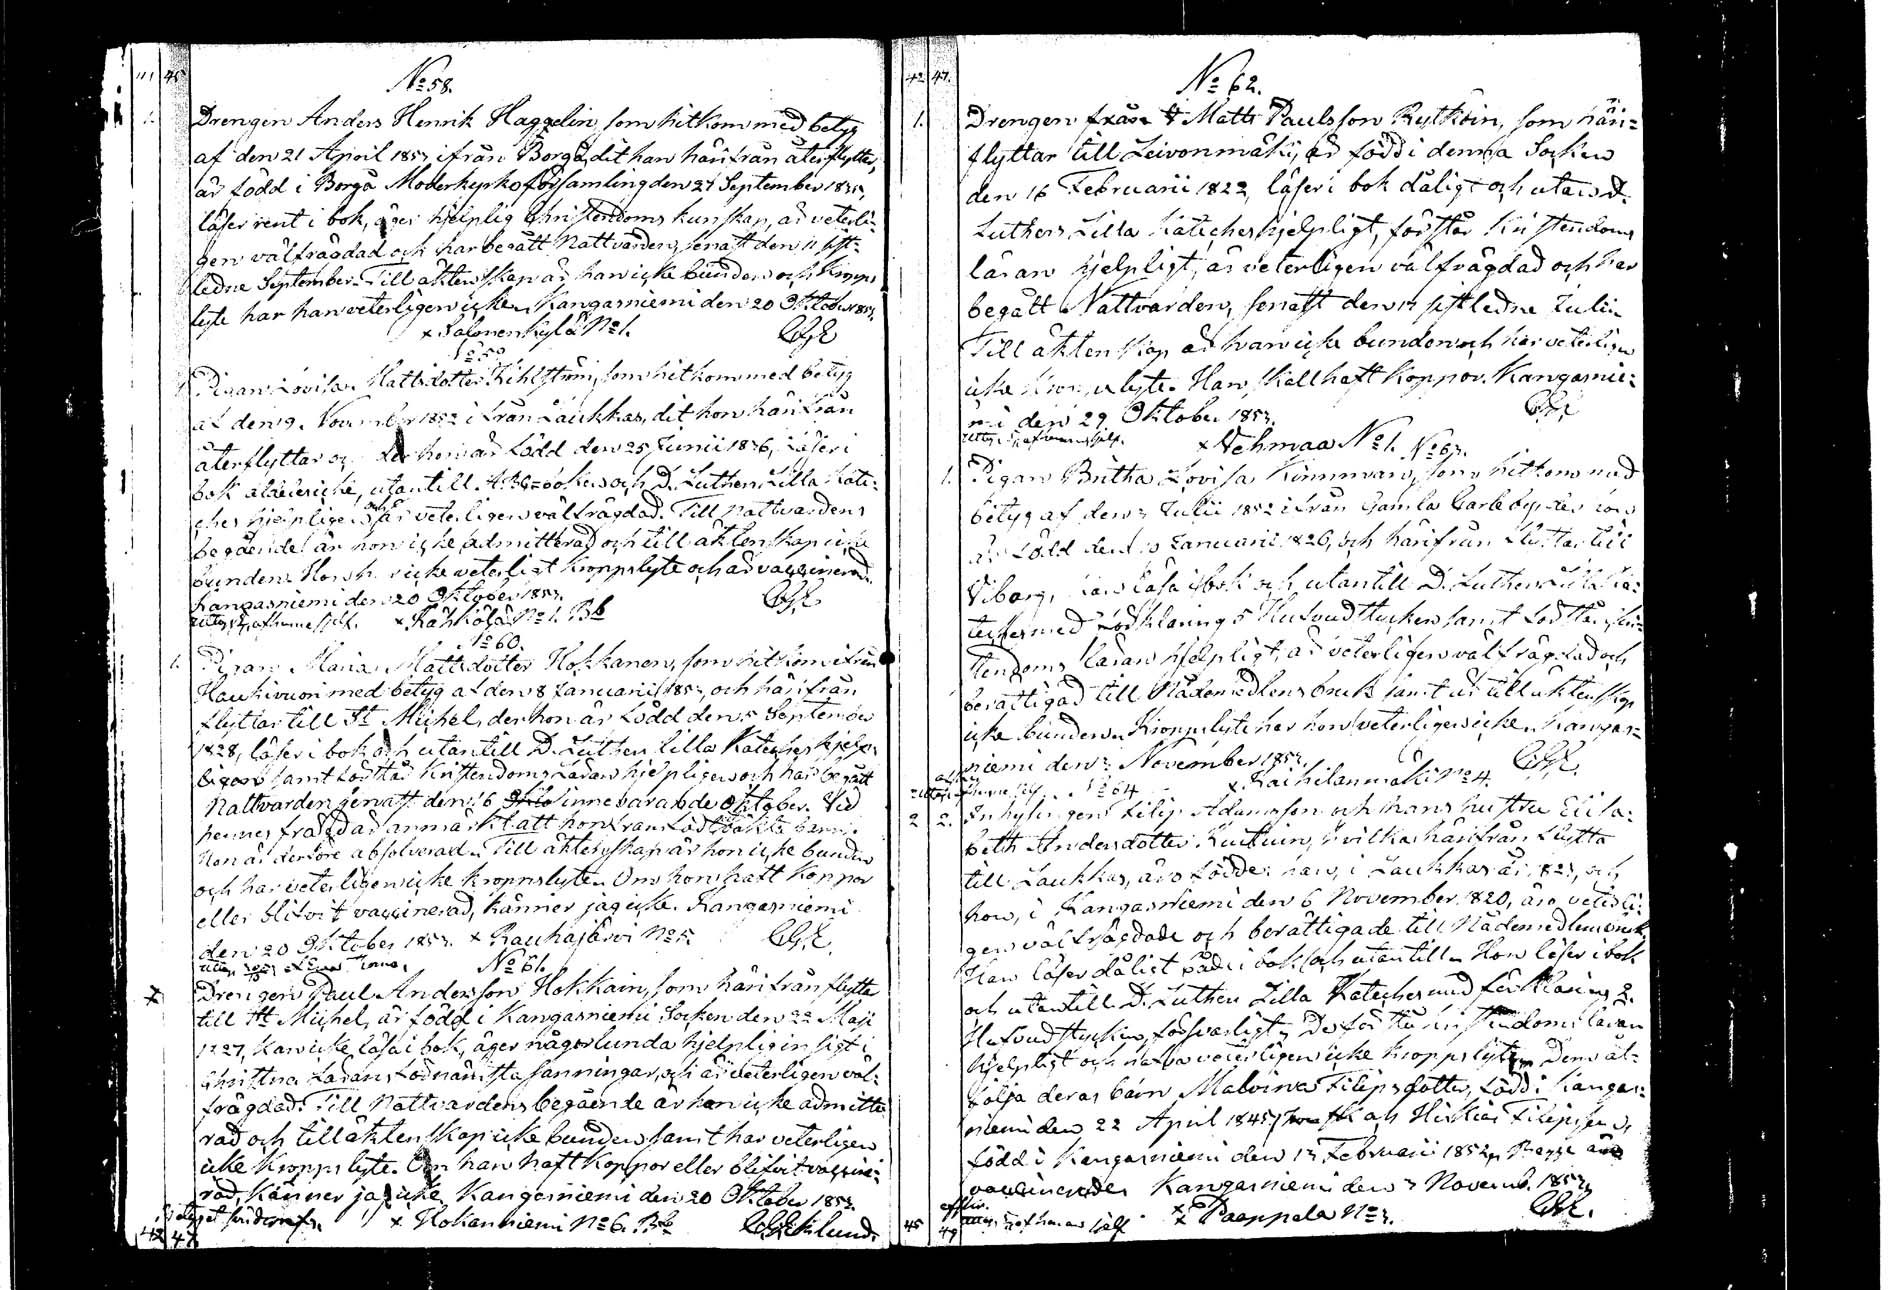 41 45
No 58.
1. Drengen Anders Henrik Haggelin, som hitkom med betyg
af den 21 April 1853 ifrån Borgå, dit han härifrån återflyttar,
är född i Borgå Moderkyrkoförsamling den 27 September 1835,
läser rent i bok, äger hjelplig Christendoms kunskap, är veterli-
gen välfrägdad och har begått Nattvarden, senast den 11 sist-
ledne September. Till äktenskap är han icke bunden och kropps
lyte har han veterligen icke. Kangasniemi den 20 Oktober 1853.
x Salmenkylä No 1.
No 59
1. Pigan Lovisa Mattsdotter Kihlström, som hitkom med betyg
af den 9. November 1852 ifrån Laukkas, dit hon härifrån
återflyttar och der hon är född den 25 Junii 1836, läser i
bok alldeles icke, utantill A.B.C=boken och D. Luthers Lilla Kate-
ches hjelpligen och är veterligen välfrägdad. Till Nattvardens
begående är hon icke admitterad och till äktenskap icke
bunden. Hon har icke veterligt kroppslyte och är vaccinerad.
Kangasniemi den 20 Oktober 1853.
x Käkkölä No 1. Bb
No 60.
1. Pigan Maria Mattsdotter Hokkanen, som hitkom ifrån
Haukivuori med betyg af den 8 Januarii 1853, och härifrån
flyttar till St Michel, der hon är född den 5 September
1828, läser i bok och utantill D. Luthers lilla Kateches hjelp-
ligen samt förstår Kristendoms Läran hjelpligen och har begått
Nattvarden senast den 16 innevarande Oktober. Vid
hennes frägd är anmärkt att hon framfödt oäkta barn.
Hon är derföre absolverad. Till äktenskap är hon icke bunden
och har veterligen icke kroppslyte. Om hon haft koppor
eller blifvit vaccinerad, känner jag icke. Kangasniemi
den 20 Oktober 1853. x Rauhajärvi No 5.
No 61.
Drengen Paul Andersson Hokkain, som härifrån flyttar
till St Michel, är född i Kangasniemi Socken den 22 Maji
1827, kan icke läsa i bok, äger någorlunda hjelplig insigt i
Christna Lärans förnämsta sanningar, och är veterligen väl-
frägdad. Till Nattvardens begående är han icke admitte
rad och till äktenskap icke bunden samt har veterligen
icke kroppslyte. Om han haft koppor eller blifvit vaccine-
rad, känner jag icke. Kangasniemi den 20 Oktober 1853.
x Hokanniemi No 6. Eklund.
42 47
42 47.
No 62.
1. Drengen Matts Paulsson Rytköin, som här-
flyttar till Leivonmäki, är född i denna Socken
den 16 Februarii 1822, läser i bok dåligt och utantill D.
Luthers Lilla Kateches hjelpligt, förstår Kristendoms
läran hjelpligt, är veterligen välfrägdad och har
begått Nattvarden, senast den 17 sistledne Julii.
Till äktenskap är han icke bunden och har veterligen
icke kroppslyte. Han skall haft koppor. Kangasnie-
mi den 29 Oktober 1853.
x Vehmaa No 1. No 63.
1. Pigan Britha Lovisa Kinnunen, som hitkom med
betyg af den 3 Julii 1852 ifrån Gamla Carleby, der hon
är född den 10 Januarii 1826, och härifrån flyttar till
Viborg, kan läsa i bok och utantill D. Luthers Lilla Ka-
teches med förklaring 5 Hufvudstycken samt förstår Kri-
stendoms läran hjelpligt, är veterligen välfrägdad och
berättigad till Nådemedlens bruk samt är till äktenskap
icke bunden. Kroppslyte har hon veterligen icke. Kangas-
niemi den 3 November 1853.
x Kaihilanmäki No 4.
No 64
2 2. Inhysingen Filip Adamsson och hans hustru Elisa-
beth Andersdotter Kuituin, hvilka härifrån flytta
till Laukkas, äro födde: han, i Laukkas år 1823, och
hon, i Kangasniemi den 6 November 1820, äro veterli-
gen välfrägdade och berättigade till Nådemedlens bruk.
Han läser dåligt både i bok och utantill. Hon läser i bok
och utantill D. Luthers Lilla Kateches med förklaring 2
Hufvudstycken, försvarligt. De förstå Kristendoms läran
hjelpligt och hafva veterligen icke kroppslyte. Dem åt-
följa deras barn Malvina Filipsdotter, född i Kangas-
niemi den 22 April 1845, och Hiskias Filipsson,
född i Kangasniemi den 13 Februarii 1852. Begge äro
vaccinerade. Kangasniemi den 3 Novemb. 1853.
x Paappala No 3.
45 49